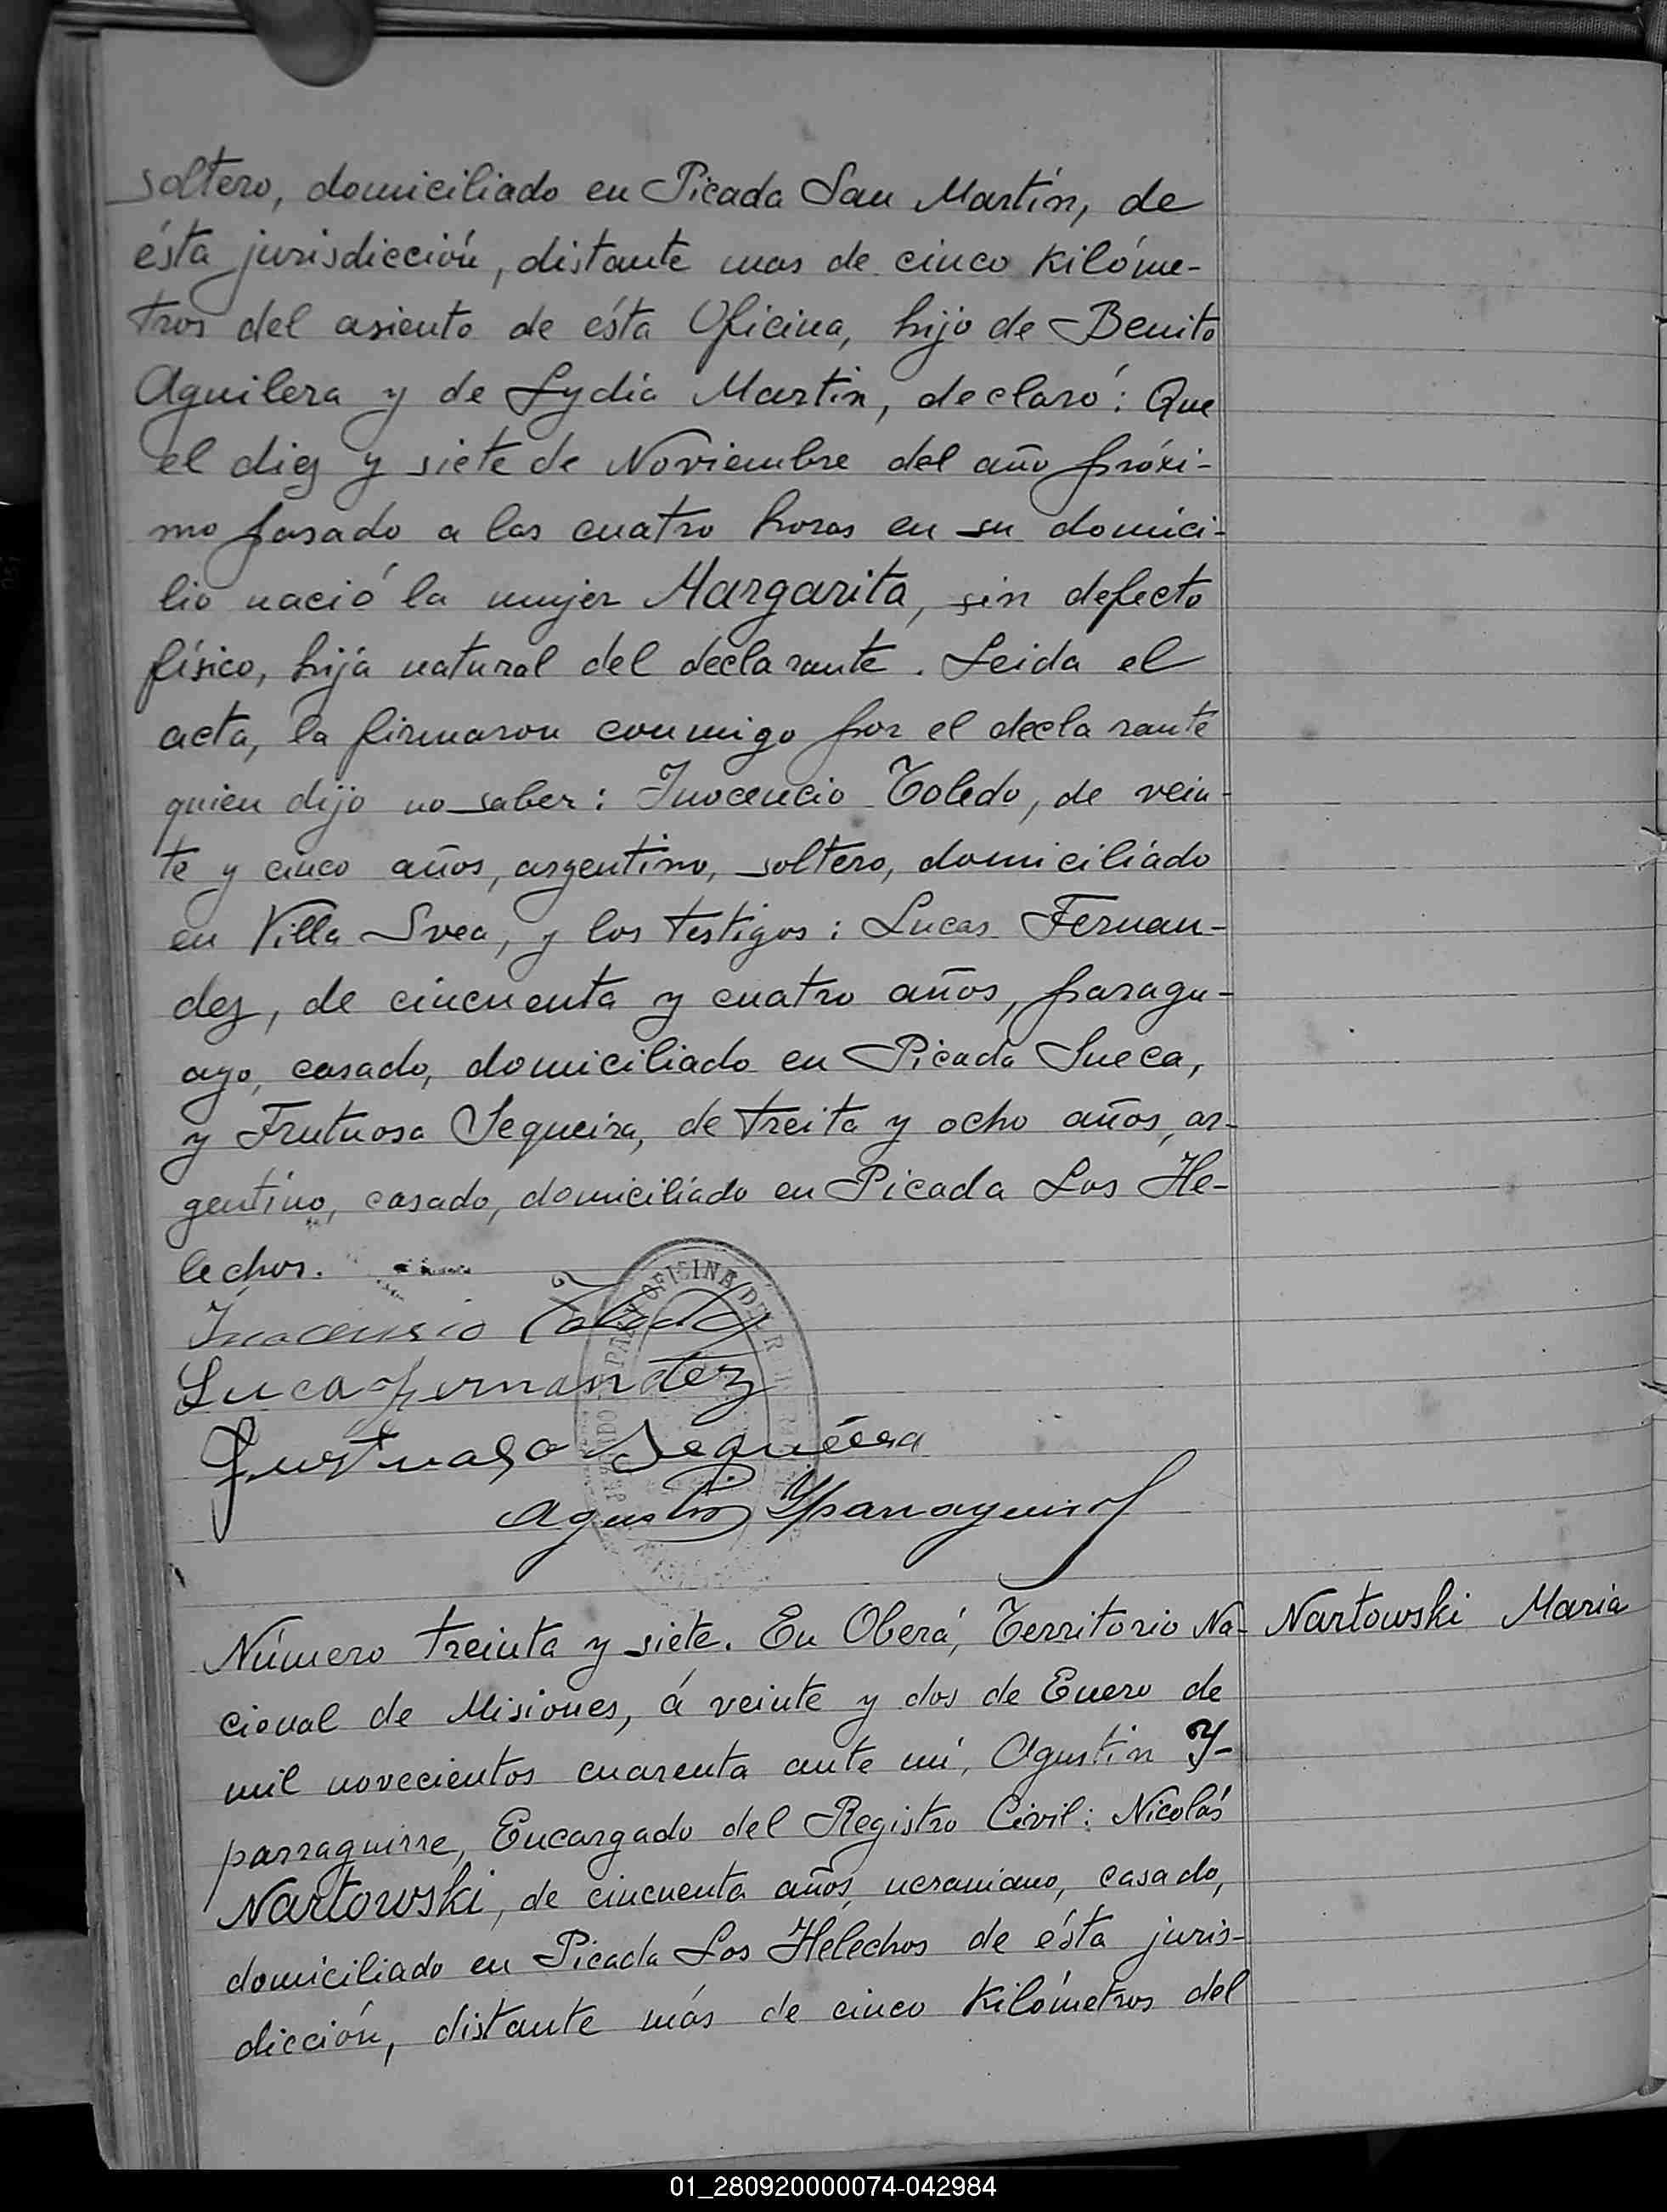 soltero, domiciliado en Picada San Martín, de
ésta jurisdicción, distante mas de cinco kilóme-
tros del asiento de ésta Oficina, hijo de Benito
Aguilera y de Lydia Martin, declaró: Que
el diez y siete de Noviembre del año próxi-
mo pasado a las cuatro horas en su domici-
lio nació la mujer Margarita, sin defecto
físico, hija natural del declarante. Leida el
acta, la firmaron conmigo por el declarante
quien dijo no saber: Inocencio Toledo, de vein-
te y cinco años, argentino, soltero, domiciliado
en Villa Svea, y los testigos: Lucas Fernan-
dez, de cincuenta y cuatro años, paragu-
ayo, casado, domiciliado en Picada Sueca,
y Frutuoso Sequeira, de treita y ocho años, ar-
gentino, casado, domiciliado en Picada Los He-
lechos.
OFICINA DE
Inocensio Toledo
Lucas fernandez
Sequeira
Agustin Yparraguirre
Número treinta y siete. En Oberá, Territorio Na- Nartowski Maria
cional de Misiones, á veinte y dos de Enero de
mil novecientos cuarenta ante mí, Agustin Y-
parraguirre, Encargado del Registro Civil: Nicolás
Nartowski, de cincuenta años, ucraniano, casado,
domiciliado en Picada Los Helechos de ésta juris-
dicción, distante más de cinco kilómetros del
01_280920000074-042984